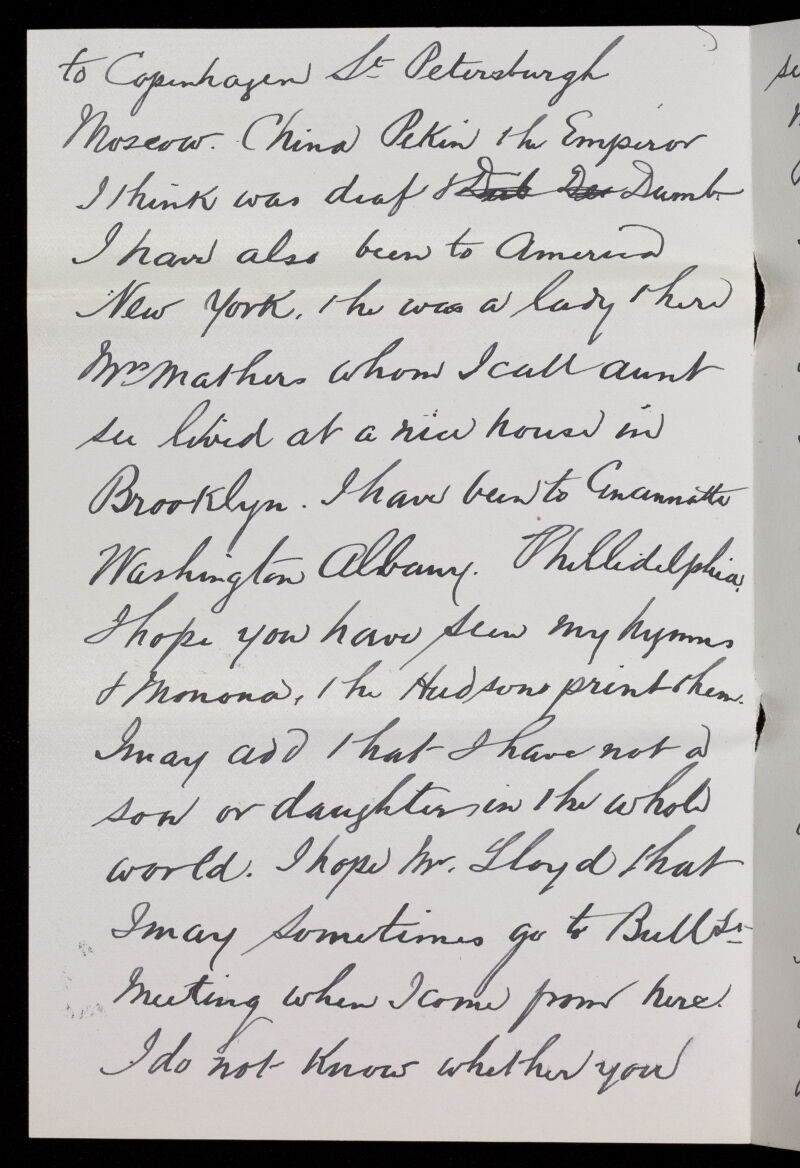 to Copenhagen St Petersburgh
Moscow. China Pekin the Emperor
I think was deaf & Dub De Dumb.
I have also been to America
New York, the was a lady there
Mrs Mathers whom I call aunt
see lived at a nice house in
Brooklyn. I have been to Cincannatti
Washington Albany. Phillidelphia.
I hope you have seen my hymns
& Monona, the Hudsons print them.
I may add that I have not a
son or daughter in the whole
world. I hope Mr. Lloyd that
I may sometimes go to Bull St
Meeting when I come from here.
I do not know whether you